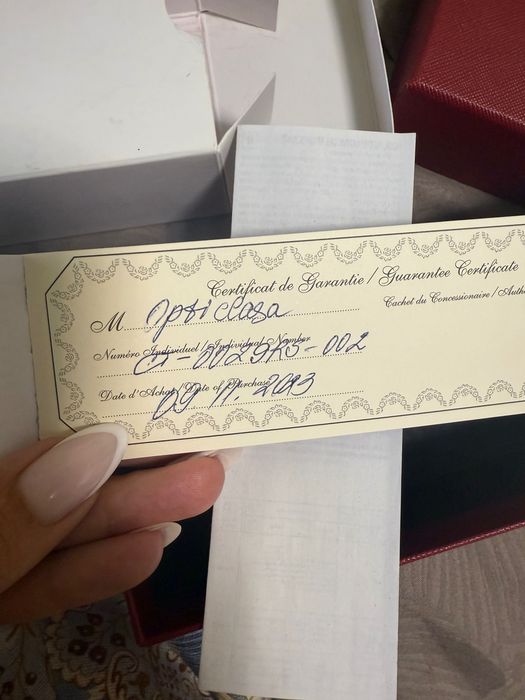 Certificat de Garantie / Guarantee Certificate
M. Opticlasa
Cachet du Concessionaire / Autho
Numéro Individuel / Individual Number
CT-0029RS-002
Date d'Achat / Date of Purchase
09.11.2023